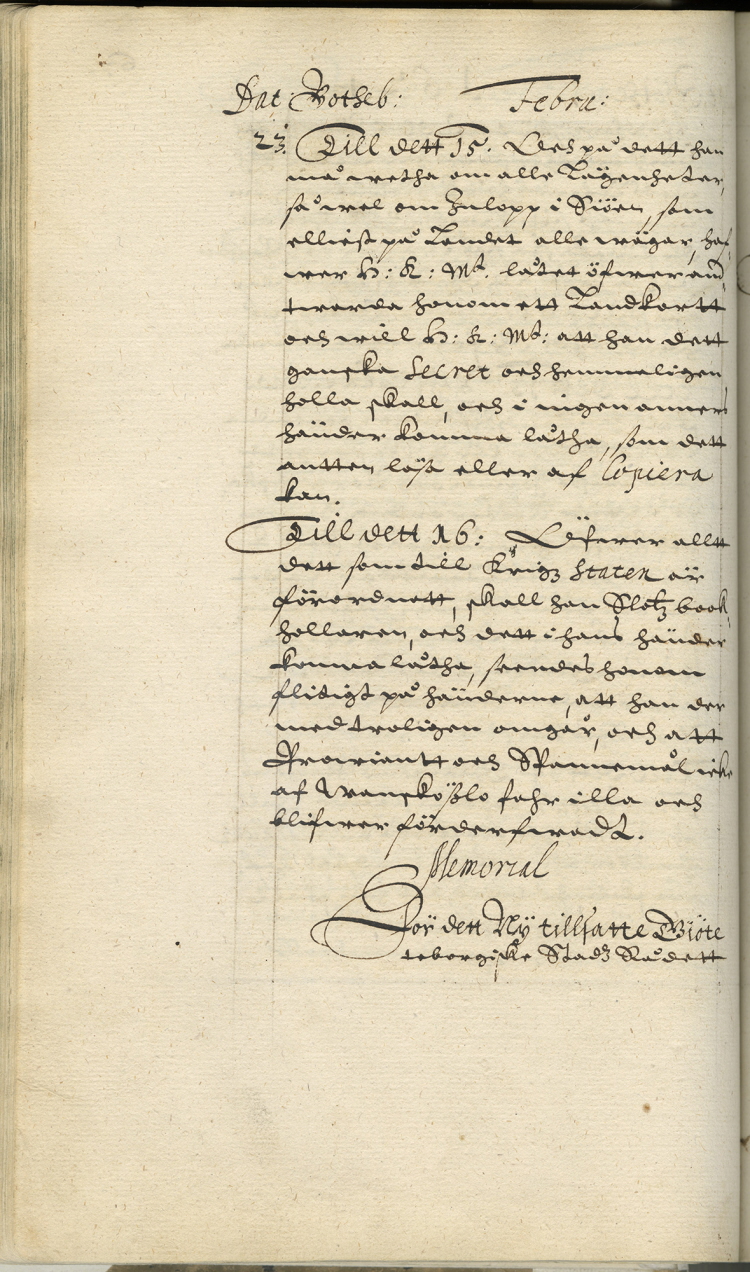 Dat: Gotheb: Febru:
23. Till dett 15. Och på dett han
må wetha om alle Lägenheter,
så wel om Inlopp i Siöen, som
elliest på Landet alle wägar, haf
wer H: K: Mt. låtet öfwer and
twarda honom ett Landkortt
och will H: K: Mt: att han dett
ganska Secret och hemmeligen
holla skall, och i ingen anners
händer komma låtha, som dett
antten läsa eller af Copiera
kan.
Till dett 16: Öfwer allt
dett som till Krigz Staten är
förordnett, skall han Slotz book
hollaren, och dett i hans händer
komma låtha, seendes honom
flitigt på händerne, att han der
med troligen omgår, och att
Prowiantt och Spannemål icke
af Wanskötzlo fahr illa och
blifwer förderfwadt.
Memorial
För dett Ny tillsatte Giöte
teborgiske Stadz Rådett